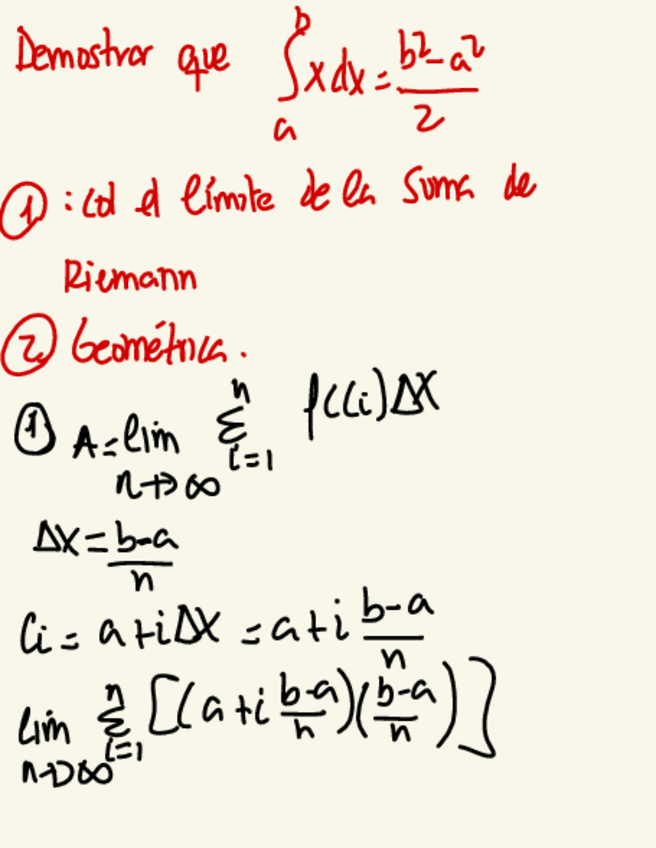 Demostrar que ∫_a^b x dx = (b²-a²)/2
① : el límite de la suma de
Riemann
② Geométrica.
① A = lim_{n→∞} Σ_{i=1}^n f(Ci)Δx
Δx = (b-a)/n
Ci = a+iΔx = a+i (b-a)/n
lim_{n→∞} Σ_{i=1}^n [(a+i (b-a)/n)((b-a)/n)]